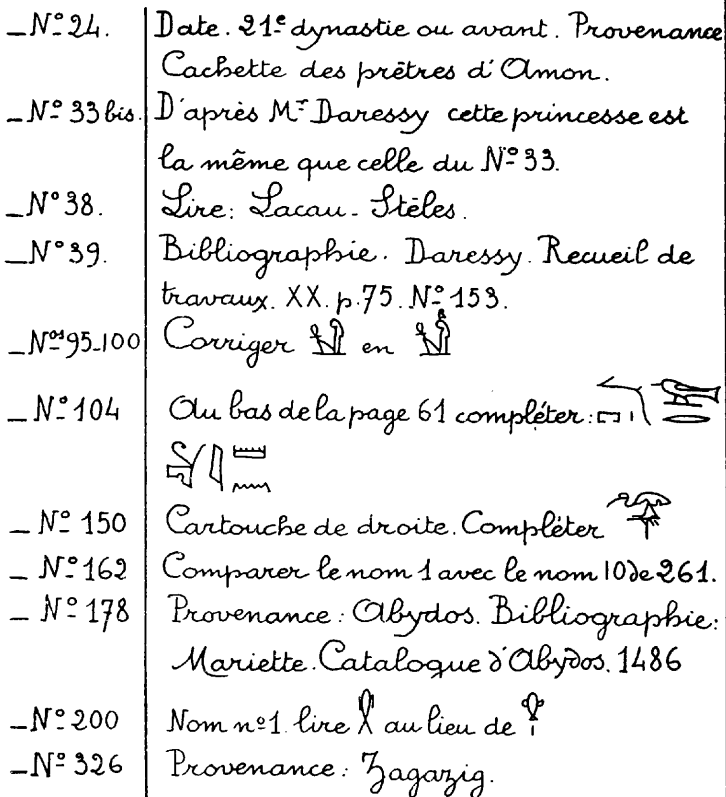 _N° 24. Date. 21e dynastie ou avant. Provenance
Cachette des prêtres d'Amon.
_N° 33 bis. D'après Mr Daressy cette princesse est
la même que celle du N° 33.
_N° 38. Lire: Lacau. Stèles.
_N° 39. Bibliographie. Daressy. Recueil de
travaux. XX. p. 75. N° 153.
_Nos 95-100 Corriger en
_N° 104 Au bas de la page 61 compléter:
_N° 150 Cartouche de droite. Compléter
_N° 162 Comparer le nom 1 avec le nom 10 de 261.
_N° 178 Provenance: Abydos. Bibliographie:
Mariette. Catalogue d'Abydos. 1486
_N° 200 Nom n° 1. lire au lieu de
_N° 326 Provenance: Zagazig.